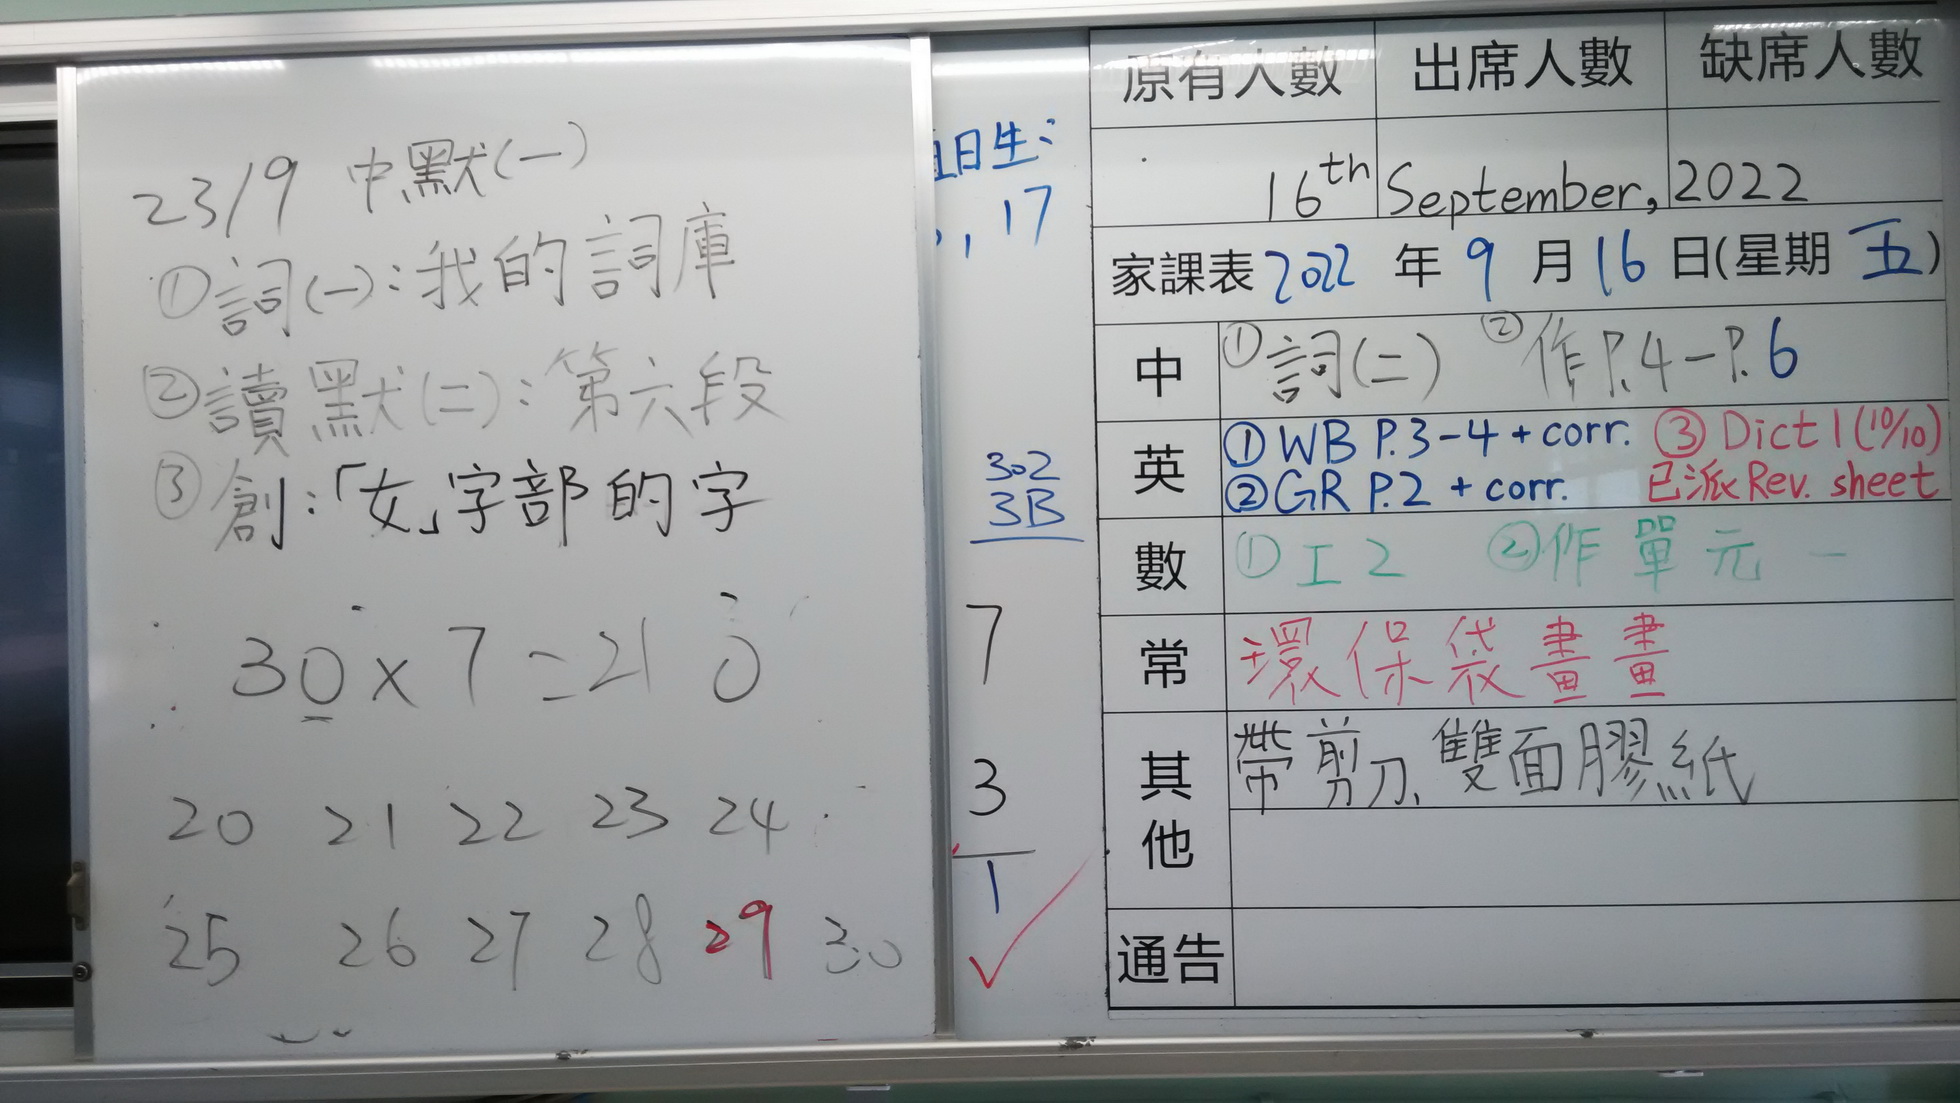 23/9 中默(一)
①詞(一):我的詞庫
②讀默(二):第六段
③創:「女」字部的字
30×7=210
20 21 22 23 24
25 26 27 28 29 30
日生:
, 17
302
3B
7
3
1
原有人數 出席人數 缺席人數
16th September, 2022
家課表 2022 年 9 月 16 日(星期 五)
中 ①詞(二) ②作P.4-P.6
英 ①WB P.3-4 + corr. ③Dict 1 (10/10)
②GR P.2 + corr. 已派Rev. sheet
數 ①工2 ②作單元一
常 環保袋畫畫
其他 帶剪刀、雙面膠紙
通告